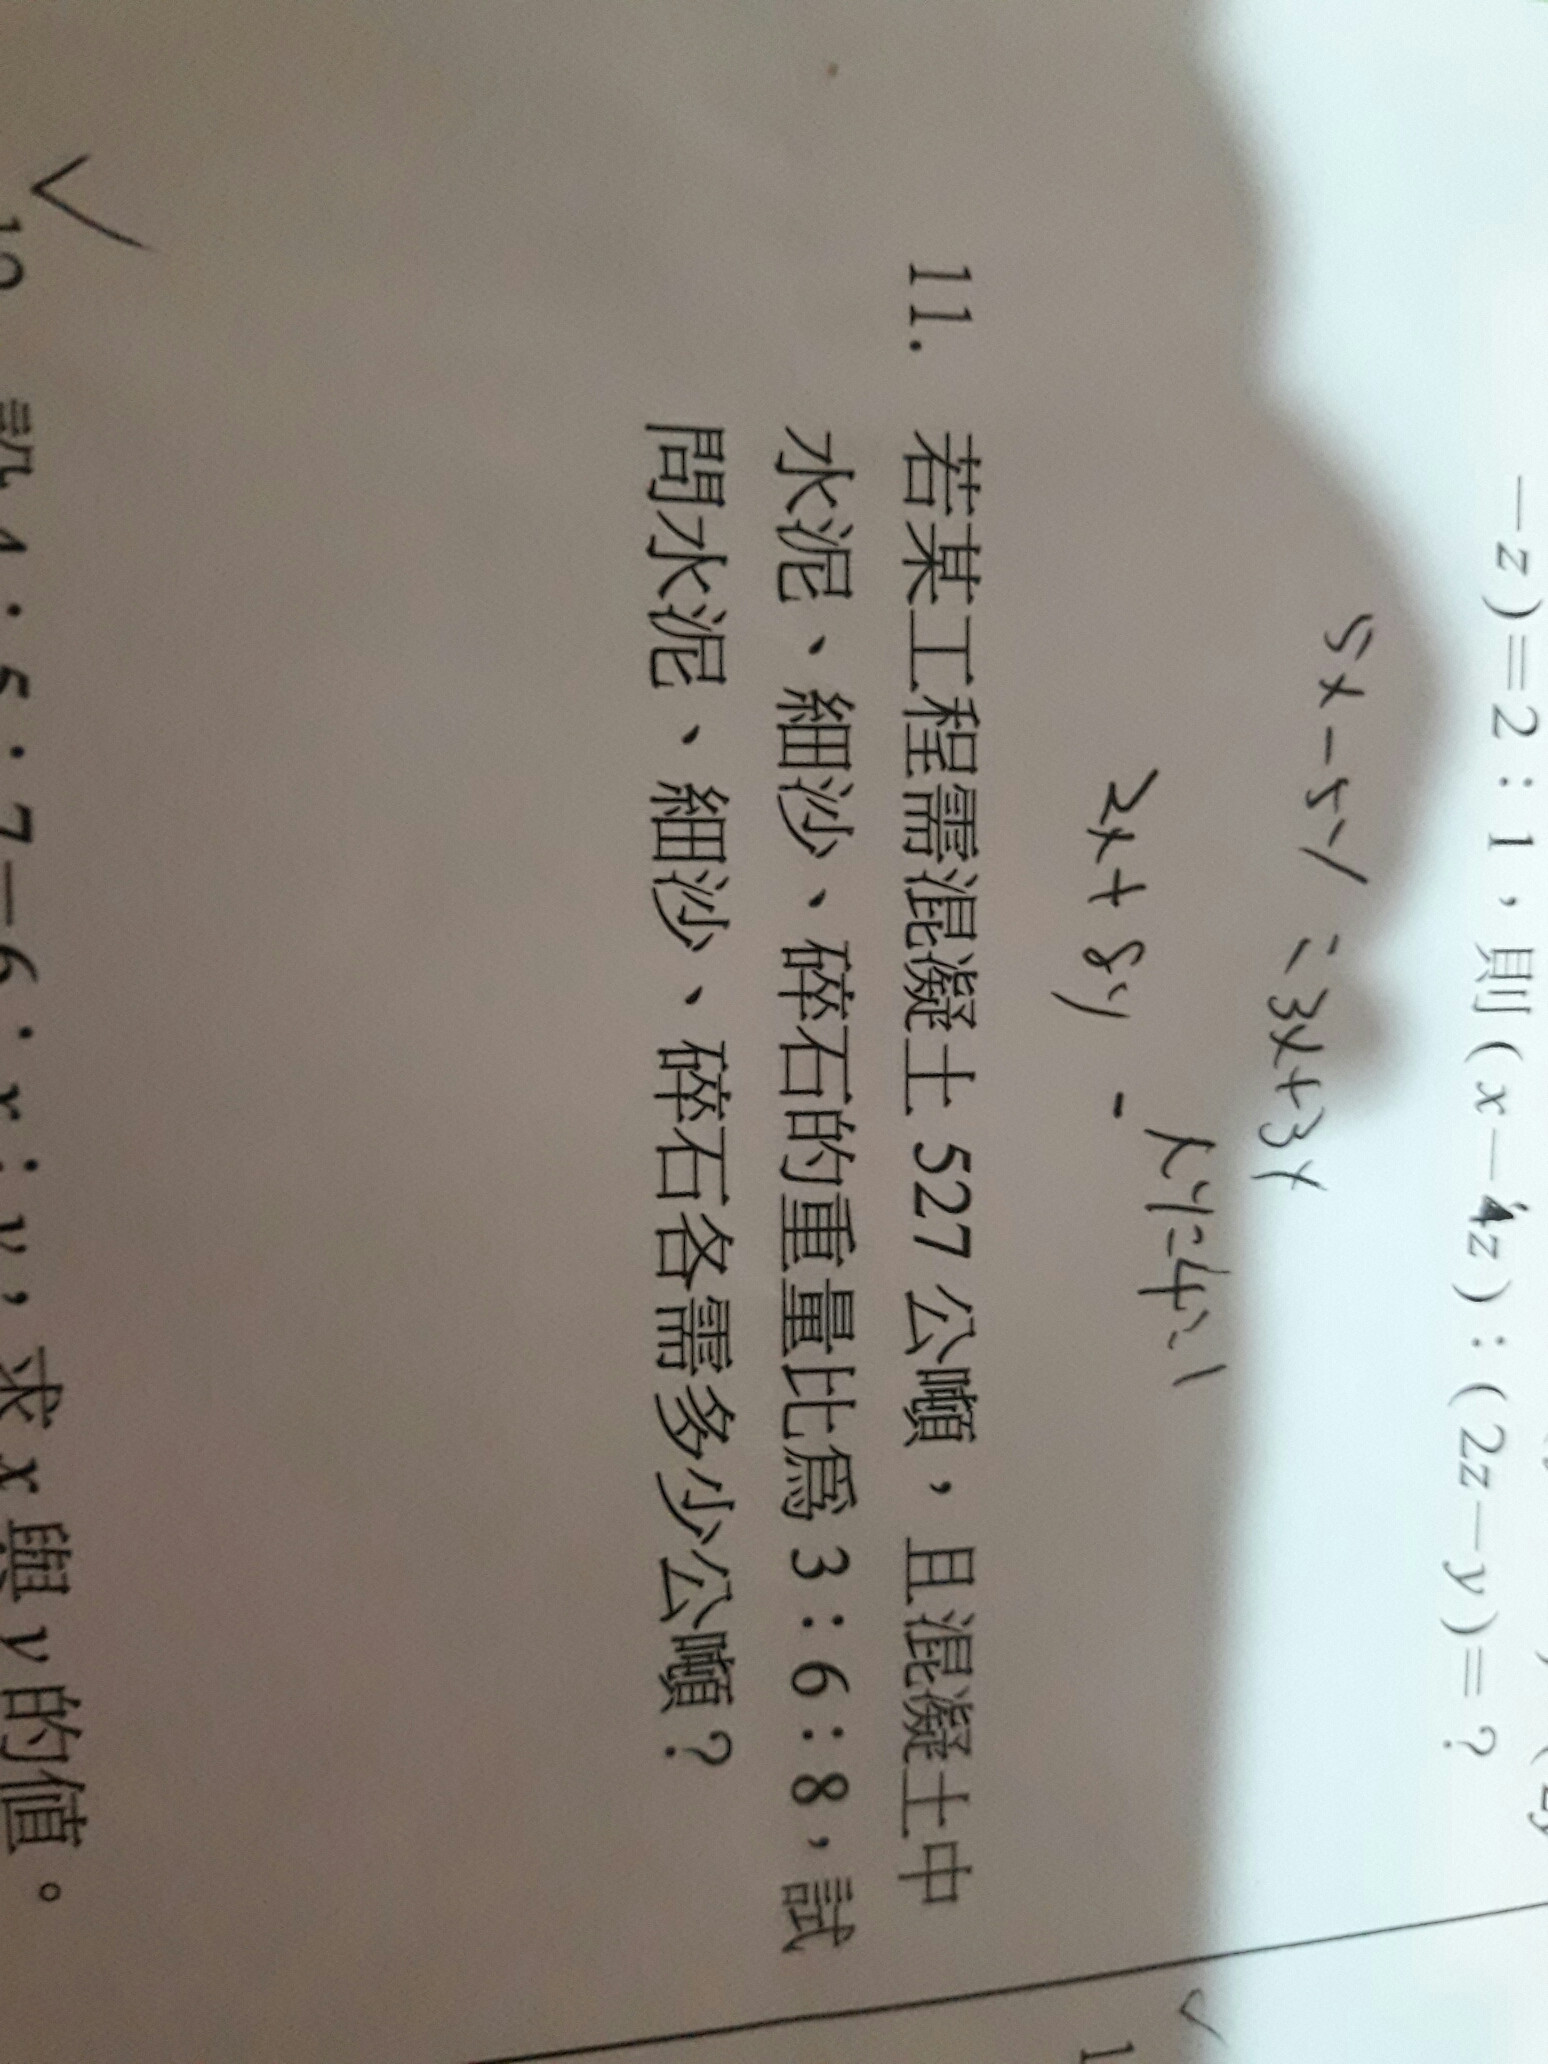 －z)＝2：1，則(x－4z)：(2z－y)＝？
5x－5y＝3x＋3y
x:y=4:1
2x+8y
11. 若某工程需混凝土 527 公噸，且混凝土中
水泥、細沙、碎石的重量比為 3：6：8，試
問水泥、細沙、碎石各需多少公噸？
4：5：7＝6：x：y，求 x 與 y 的值。